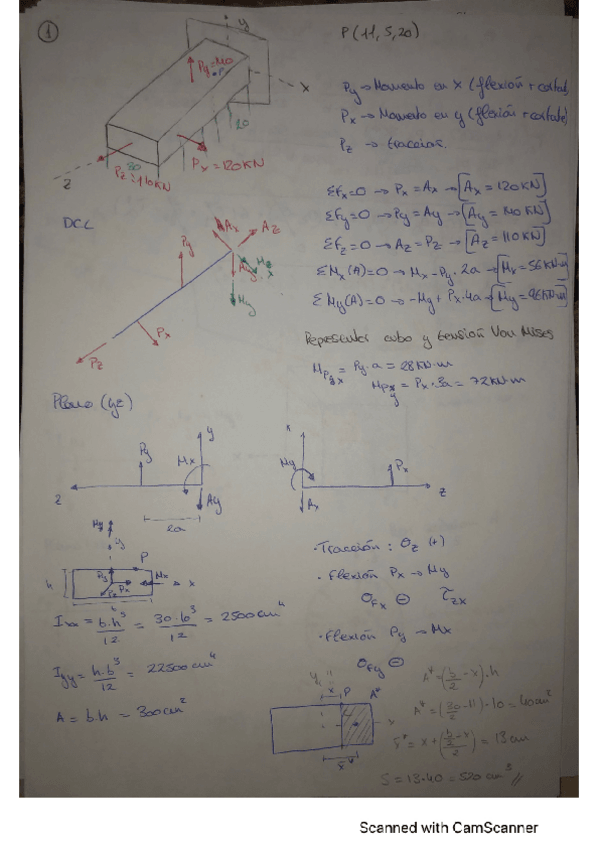 1
P(11,5,20)
y
Py=140
P
x
20
Px=120KN
z
Pz=110KN
Py → Momento en x (flexión + cortante)
Px → Momento en y (flexión + cortante)
Pz → tracción.
DCL
Ax
Az
Py
Ay
Mx
x
My
Px
Pz
ΣFx=0 → Px = Ax → [Ax = 120KN]
ΣFy=0 → Py = Ay → [Ay = 140 KN]
ΣFz=0 → Az = Pz → [Az = 110KN]
ΣMx(A)=0 → Mx - Py·2a → [Mx = 56KN·m]
ΣMy(A)=0 → -My + Px·4a → [My = 96KN·m]
Representar cubo y tensión Von Mises
MPyx = Py·a = 28KN·m
MPxy = Px·3a = 72KN·m
Plano (yz)
y
Py
Mx
z
Ay
2a
x
My
Px
Ax
z
My
y
P
h
Py
Px
Pz
Mx
x
b
Ixx = b·h³/12 = 30·10³/12 = 2500cm⁴
Iyy = h·b³/12 = 22500cm⁴
A = b·h = 300cm²
·Tracción: σz (+)
·Flexión Px → My
σfx ⊖ τzx
·Flexión Py → Mx
σfy ⊖
y
x
P
A*
x
A* = (b/2 - x)·h
A* = (30/2 - 11)·10 = 40cm²
= 13cm
S = 13·40 = 520cm³
Scanned with CamScanner